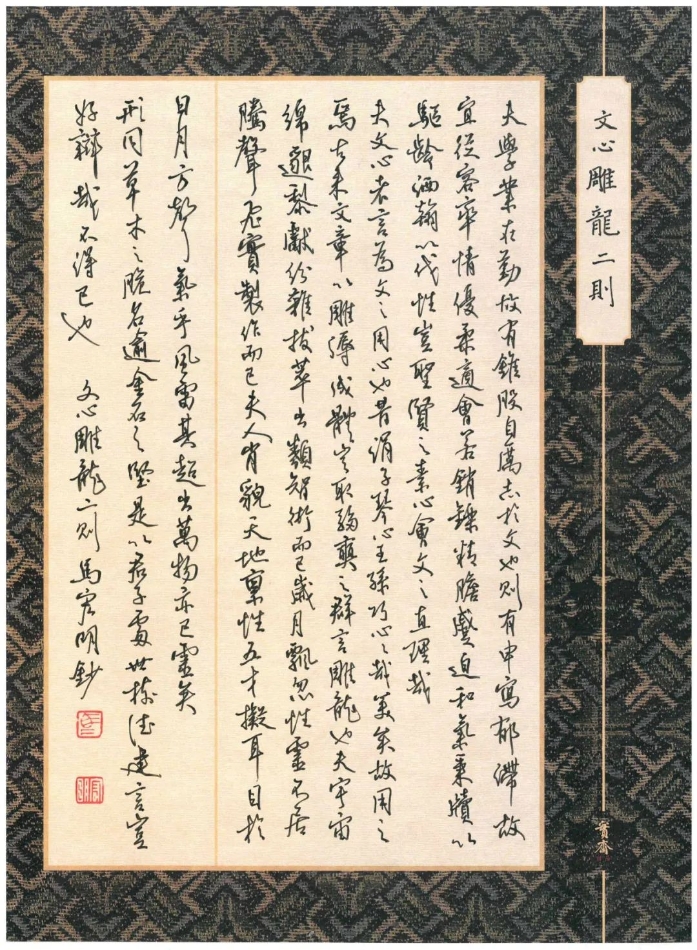 文心雕龍二則
夫學業在勤故有錐股自厲志於文也則有申寫郁滯故
宜從容率情優柔適會若銷鑠精膽蹙迫和氣秉牘以
驅齡洒翰以伐性豈聖賢之素心會文之直理哉
夫文心者言為文之用心也昔涓子琴心王孫巧心心哉美矣故用之
焉古來文章以雕縟成體豈取騶奭之群言雕龍也夫宇宙
綿邈黎獻紛雜拔萃出類智術而已歲月飄忽性靈不居
騰聲飛實製作而已夫人肖貌天地稟性五才擬耳目於
日月方聲氣乎風雷其超出萬物亦已靈矣
形同草木之脆名逾金石之堅是以君子處世樹德建言豈
好辯哉不得已也 文心雕龍二則 馬宏明鈔